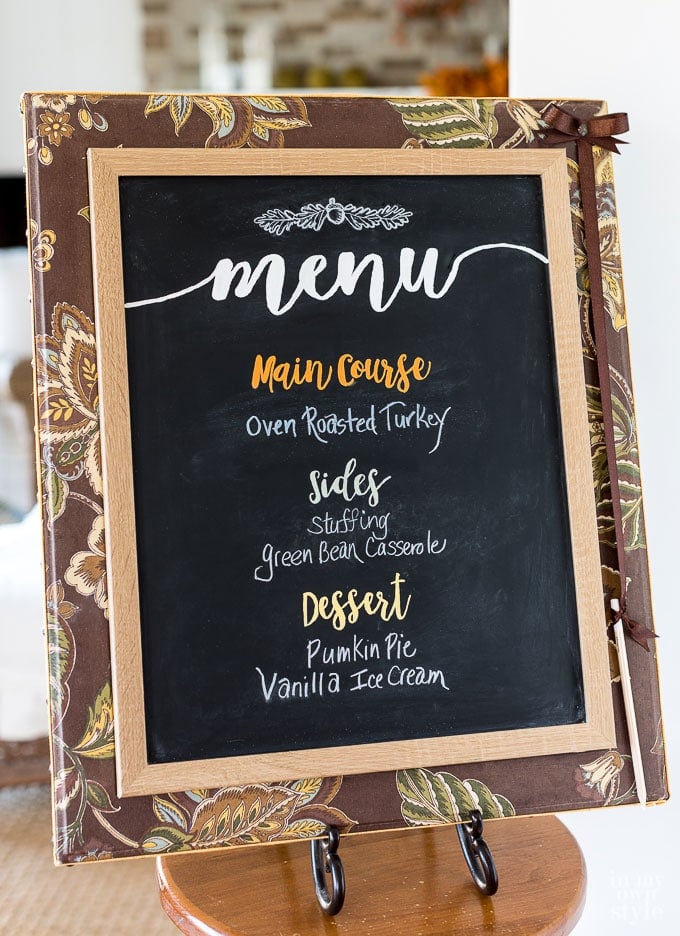 menu
Main Course
Oven Roasted Turkey
Sides
Stuffing
Green Bean Casserole
Dessert
Pumkin Pie
Vanilla Ice Cream
in my
own
style